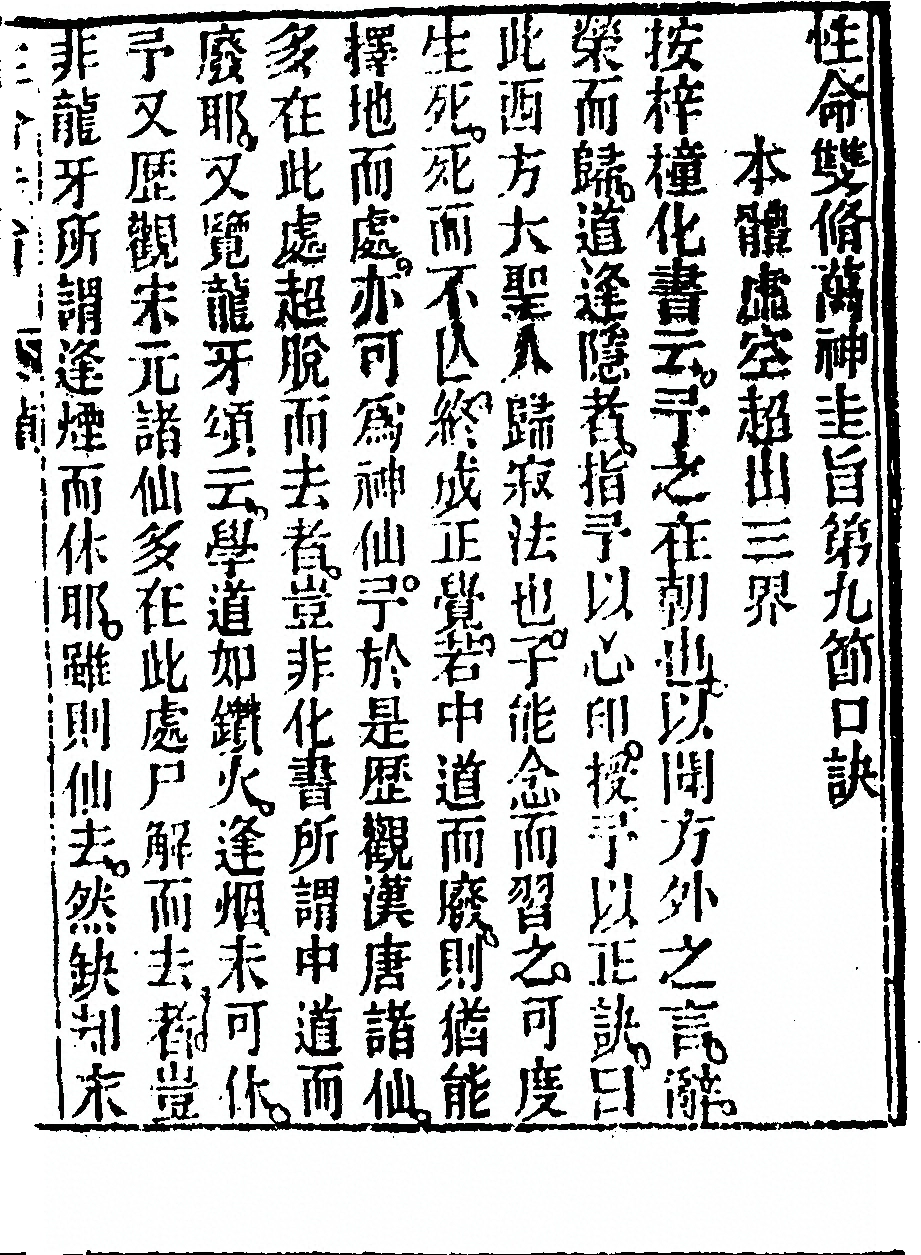 性命雙脩萬神圭旨第九節口訣
本體虛空超出三界
按梓橦化書云予之在朝也以聞方外之言辭
榮而歸道逢隱者指予以心印授予以正訣曰
此西方大聖人歸寂法也子能念而習之可度
生死死而不亾終成正覺若中道而廢則猶能
擇地而處亦可爲神仙予於是歷觀漢唐諸仙
多在此處超脫而去者豈非化書所謂中道而
廢耶又覽龍牙頌云學道如鑽火逢烟未可休
予又歷觀宋元諸仙多在此處尸解而去者豈
非龍牙所謂逢煙而休耶雖則仙去然缺却末